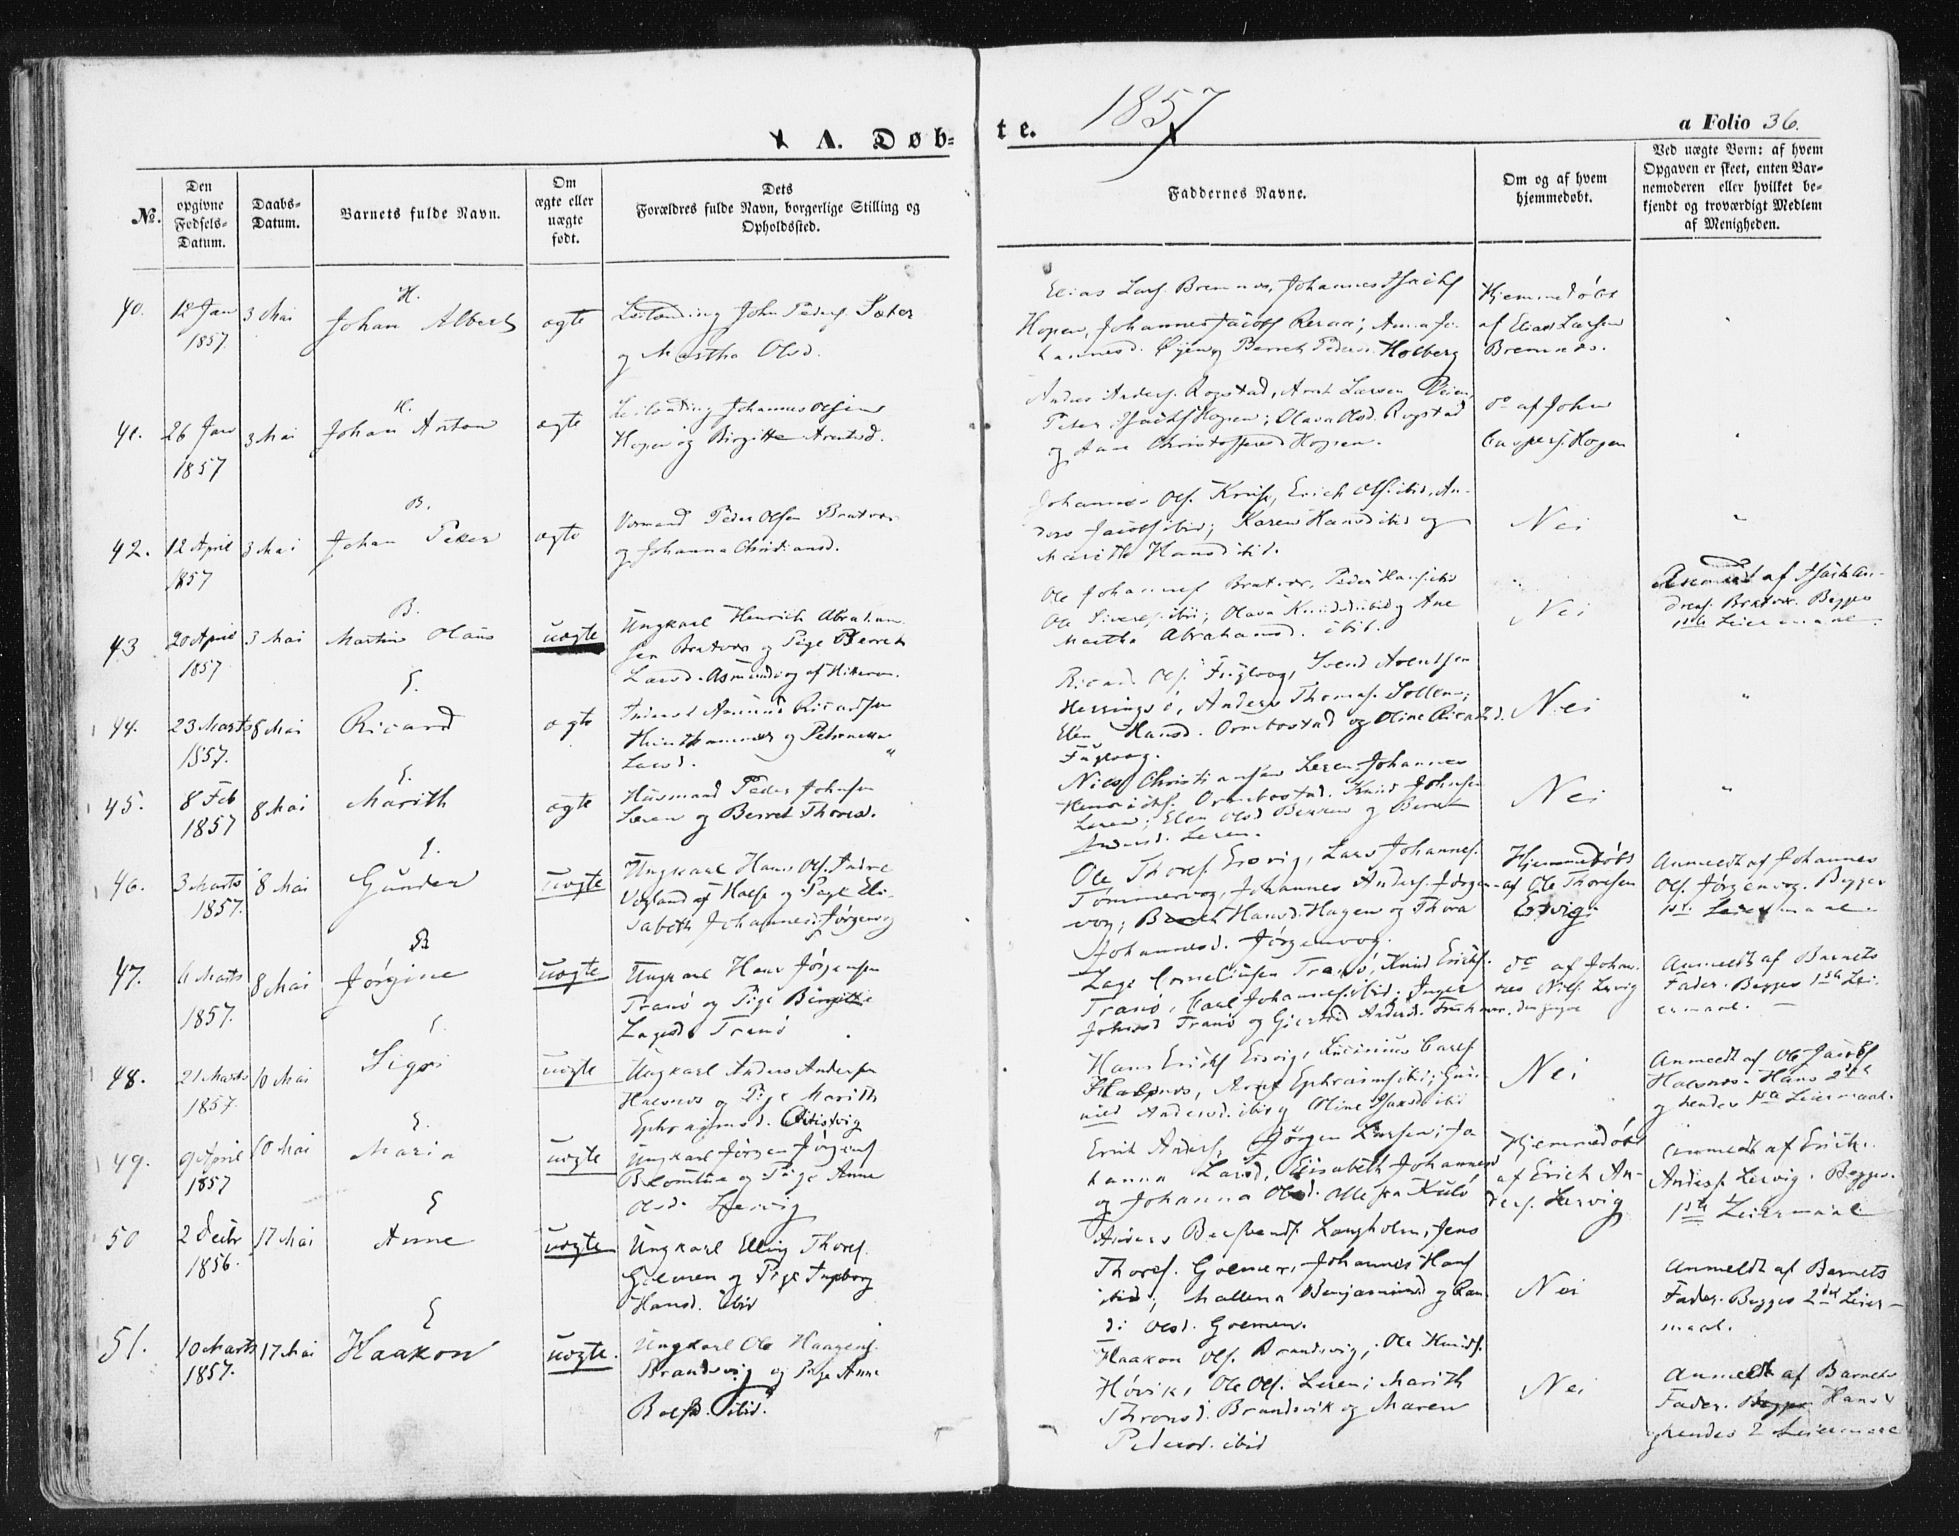 A. Døb-
te.
1857
a Folio 36.
No.
Den opgivne Fødsels-Datum.
Daabs-Datum.
Barnets fulde Navn.
Om ægte eller uægte født.
Dets
Forældres fulde Navn, borgerlige Stilling og
Opholdssted.
Faddernes Navne.
Om og af hvem
hjemmedøbt.
Ved uægte Børn: af hvem
Opgaven er skeet, enten Bar-
nemoderen eller hvilket be-
kjendt og troværdigt Medlem
af Menigheden.
40. 12 Jan 1857 3 Mai
H.
Johan Albert
ægte
John Peders. Sæter
og Martha Olsd.
Elias Lars. Bremnes, Johannes
Hopen, Johannes Jacobs. ; Anna Jo-
hannesd. Øyen og Berret Pedersd. Holberg
Hjemmedøbt
af Elias Larsen
Bremnes.
41. 26 Jan 1857 3 Mai
H.
Johan Anton
ægte
Johannes Olsen
Hopen og Birgitte Arntsd.
Anders Anders. Rogstad, Arnt Larsen
Peter Hopen; Olava Olsd. Rogstad
og Ane Christoffersd. Hopen.
do af John
Caspers. Hopen
42. 12 April 1857 3 Mai
B.
Johan Peter
ægte
Peder Olsen Bratvær
og Johanna Christiansd.
Johannes Ols. , Erich Ols. ibid, An-
ders Jacobs. ibid; Karen Hansd. ibid og
Marith Hansd. ibid.
Nei
43 20 April 1857 3 Mai
B.
Martin Olaus
uægte
Ungkarl Henrich Abraham-
sen Bratvær og Pige Berreth
Larsd. Asmundvog af Hitteren.
Ole Johannes. Bratvær, Peder Hans. ibid
Ole Sivers. ibid; Olava Knudsd. ibid og Ane
Martha Abrahamsd. ibid.
Nei
Anmeldt af Isach An-
dreas. Bratvær. Begges
1ste Leiermaal.
44. 23 Marts 1857. 8 Mai
E.
Ricard
ægte
Asmund Ricardsen
og Petronella
Larsd.
Ricard Ols. Fuglvog, Svend Arentsen
Herringsø, Anders Thomas. Sollem;
Elen Hansd. Ornbostad og Oline Ricardsd.
Fuglvog.
Nei
45. 8 Feb 1857 8 Mai
E.
Marith
ægte
Husmand Peder Johnsen
Leren og Berret Thoresd.
Niels Christiansen Leren, Johannes
Henrichs. Ornbostad. Knud Johnsen
Leren; Elen Olsd. Berren og Berret
Leren.
Nei
46. 3 Marts 1857. 8 Mai
E.
Gunder
uægte
Ungkarl Hans Ols. Indre
Vogland af Halse og Pige Eli-
sabeth Johannesd. Jørgenvog
Ole Thores. Esvig, Lars Johannes.
Tømmervog, Johannes Anders. Jørgen-
vog; Hansd. Hagen og Thora
Johannesd. Jørgenvog.
Hjemmedøbt
af Ole Thoresen
Esvig.
Anmeldt af Johannes
Ols. Jørgenvog. Begges
1ste Leiermaal.
47. 6 Marts 1857. 8 Mai
B
Jørgine
uægte
Ungkarl Hans Jørgensen
Tranø og Pige Birgitte
Lagesd. Tranø
Lage Corneliusen Tranø, Knud Erichs.
Tranø, Carl Johannes. ibid; Inger
Johnsd. Tranø og Gjertrud Andersd.
do af Johan-
nes Niels. Lervig
Anmeldt af Barnets
Fader. Begges 1ste Lei-
ermaal.
48. 21 Marts 1857. 10 Mai
E.
Sigri
uægte
Ungkarl Anders Andersen
Halsnes og Pige Marith
Ephraimsd.
Hans Erichs. Esvig, Carls.
Halsnes, Ephraims. ibid; Gun-
nild Andersd. ibid og Oline Isaksd. ibid
Nei
Anmeldt af Ole Jacobs.
Halsnes. Hans 2det
og hendes 1ste Leiermaal.
49. 9 April 1857 10 Mai
E.
Maria
uægte
Ungkarl Jørgen Jørgens.
og Pige Anne
Olsd. Lervig
Erich Anders., Jørgen Larsen; Jo-
hanna Larsd., Elisabeth Johannesd.
og Johanna Olsd. Alle fra Kulø
Hjemmedøbt
af Erich An-
ders. Lervig
Anmeldt af Erich
Anders. Lervig. Begges
1ste Leiermaal
50 2 Decbr 1856. 17 Mai
E
Anne
uægte
Ungkarl Elling Thores.
Golmen og Pige Ingeborg
Hansd. ibid
Anders Langholm, Jens
Thores. Golmen, Johannes Hans.
ibid; Mallena Benjaminsd. og Ran-
di Olsd. Golmen.
Nei
Anmeldt af Barnets
Fader. Begges 2det Leier-
maal.
51. 10 Marts 1857. 17 Mai
E
Haakon
uægte
Ungkarl Ole Haagens.
Brandsvig og Pige Anne
ibid.
Haakon Ols. Brandsvig, Ole Knuds.
Høvik, Ole Ols. Leren; Marith
Thronsd. Brandsvik og Maren
Pedersd. ibid
Nei
Anmeldt af Barnets
Fader. Hans
og hendes 2 Leiermaal